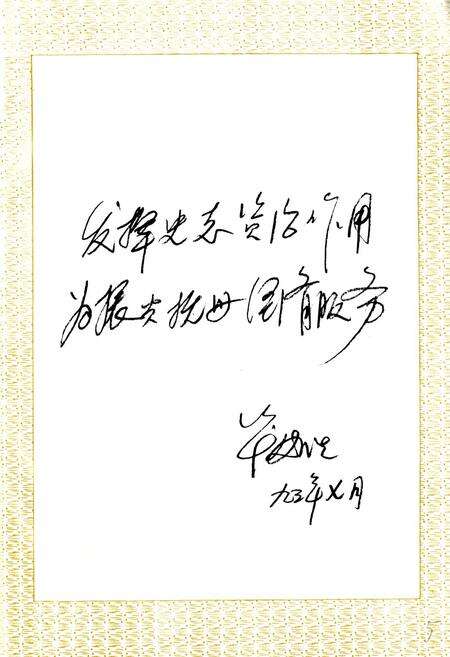 发挥史志资治作用
为振兴抚州国有服务
九三年七月
5